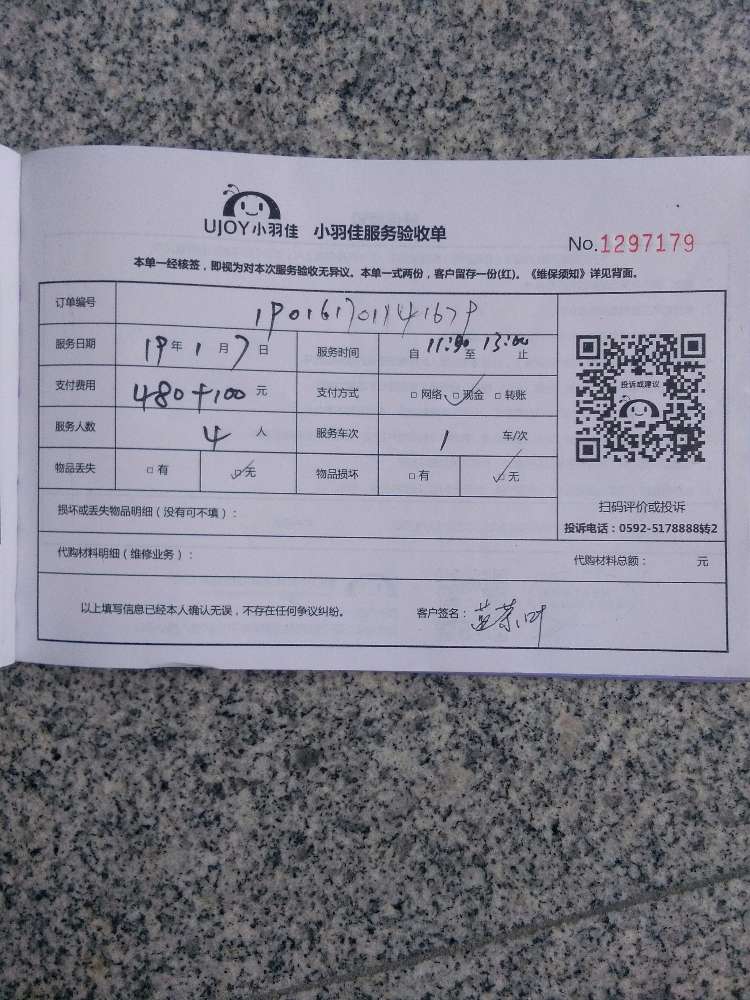 UJOY小羽佳 小羽佳服务验收单
No.1297179
本单一经核签，即视为对本次服务验收无异议。本单一式两份，客户留存一份(红)。《维保须知》详见背面。
订单编号
服务日期 19年 1月 7日 服务时间 自 11:30 至 13:00 止
支付费用 480+100 元 支付方式 □ 网络 □ 现金 □ 转账
投诉或建议
服务人数 4 人 服务车次 1 车/次
物品丢失 □ 有 □ 无 物品损坏 □ 有 □ 无
扫码评价或投诉
损坏或丢失物品明细（没有可不填）：
投诉电话：0592-5178888转2
代购材料明细（维修业务）： 代购材料总额： 元
以上填写信息已经本人确认无误，不存在任何争议纠纷。 客户签名：